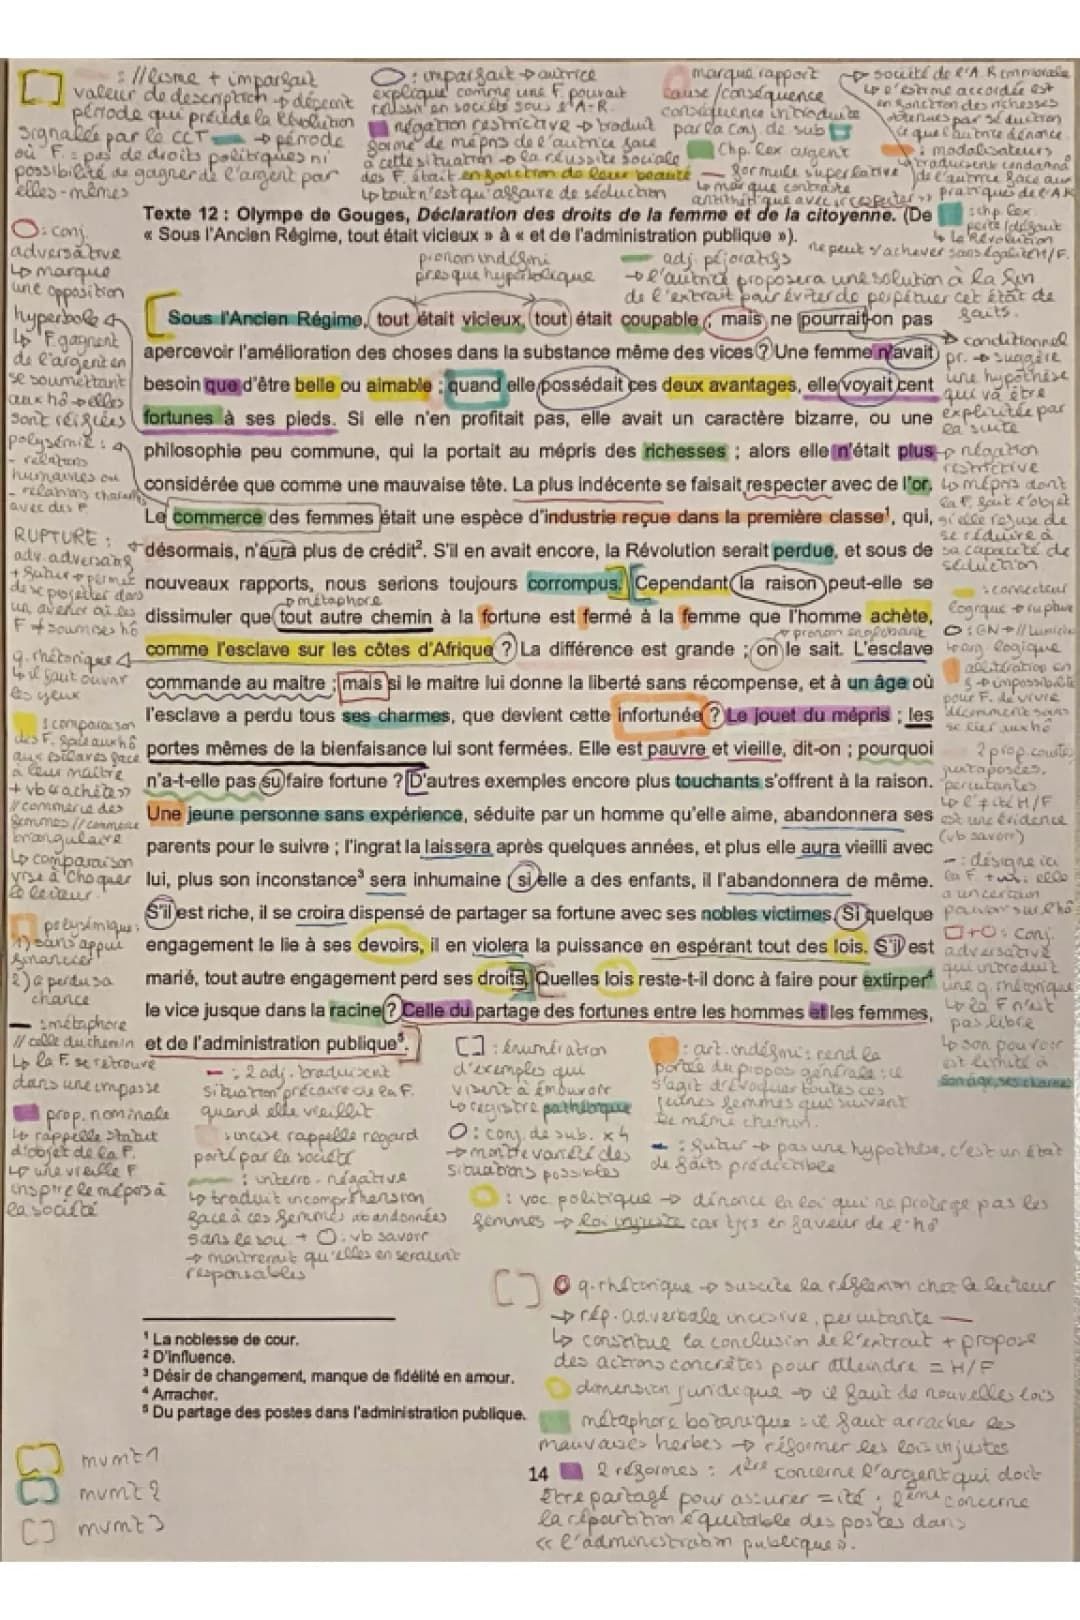 : //lisme + imparfait
valeur de description → décrit
période qui précède la Révolution
signalée par le CCT → période
où F. = pas de droits politiques ni
possibilité de gagner de l'argent par
elles-mêmes
: imparfait → autrice
explique comme une F. pouvait
réussir en société sous l'A-R.
négation restrictive → traduit
forme de mépris de l'autrice face
à cette situation → la réussite sociale
des F. était en fonction de leur beauté
↳ tout n'est qu'affaire de séduction
marque rapport
cause/conséquence
conséquence introduite
par la conj. de sub
Chp. lex argent
formule superlative
↳ marque contraste
antithétique avec « respecter »
→ société de l'A. R immorale
↳ l'estime accordée est
en fonction des richesses
obtenues par séduction
ce que l'autrice dénonce
: modalisateurs
↳ traduisent
de l'autrice face aux
pratiques de l'AR
Texte 12 : Olympe de Gouges, Déclaration des droits de la femme et de la citoyenne. (De
« Sous l'Ancien Régime, tout était vicieux » à « et de l'administration publique »).
: chp lex.
↳ la Révolution
ne peut s'achever sans égalité H/F.
pronom indéfini
presque hyperbolique
adj. péjoratifs
→ l'autrice proposera une solution à la fin
de l'extrait pour éviter de perpétuer cet état de
faits.
: conj.
adversative
↳ marque
une opposition
hyperbole
↳ F. gagnent
de l'argent en
se soumettant
aux hô → elles
sont
polysémie :
- relations
humaines ou
- relations
avec des F.
Sous l'Ancien Régime, tout était vicieux, tout était coupable ; mais ne pourrait-on pas
apercevoir l'amélioration des choses dans la substance même des vices ? Une femme n'avait
besoin que d'être belle ou aimable ; quand elle possédait ces deux avantages, elle voyait cent
fortunes à ses pieds. Si elle n'en profitait pas, elle avait un caractère bizarre, ou une
philosophie peu commune, qui la portait au mépris des richesses ; alors elle n'était plus
considérée que comme une mauvaise tête. La plus indécente se faisait respecter avec de l'or.
Le commerce des femmes était une espèce d'industrie reçue dans la première classe¹, qui,
désormais, n'aura plus de crédit². S'il en avait encore, la Révolution serait perdue, et sous de
nouveaux rapports, nous serions toujours corrompus. Cependant la raison peut-elle se
métaphore
dissimuler que tout autre chemin à la fortune est fermé à la femme que l'homme achète,
pronom englobant
comme l'esclave sur les côtes d'Afrique ? La différence est grande ; on le sait. L'esclave
commande au maître ; mais si le maître lui donne la liberté sans récompense, et à un âge où
l'esclave a perdu tous ses charmes, que devient cette infortunée ? Le jouet du mépris ; les
portes mêmes de la bienfaisance lui sont fermées. Elle est pauvre et vieille, dit-on ; pourquoi
n'a-t-elle pas su faire fortune ? D'autres exemples encore plus touchants s'offrent à la raison.
Une jeune personne sans expérience, séduite par un homme qu'elle aime, abandonnera ses
parents pour le suivre ; l'ingrat la laissera après quelques années, et plus elle aura vieilli avec
lui, plus son inconstance³ sera inhumaine ; si elle a des enfants, il l'abandonnera de même.
S'il est riche, il se croira dispensé de partager sa fortune avec ses nobles victimes. Si quelque
engagement le lie à ses devoirs, il en violera la puissance en espérant tout des lois. S'il est
marié, tout autre engagement perd ses droits. Quelles lois reste-t-il donc à faire pour extirper⁴
le vice jusque dans la racine ? Celle du partage des fortunes entre les hommes et les femmes,
et de l'administration publique⁵.
→ conditionnel
pr. → suggère
une hypothèse
qui va être
explicitée par
la suite
→ négation
restrictive
↳ mépris dont
la F. fait l'objet
si elle refuse de
se réduire à
sa capacité de
séduction
: connecteur
logique → rupture
: GN → // Lumières
→ arg. logique
allitération en
f → impossibilité
pour F. de vivre
décemment sans
se lier aux hô
2 prop. courtes
juxtaposées,
percutantes
↳ l'≠ité H/F
est une évidence
(vb savoir)
: désigne ici
la F. elle
a un certain
pouvoir sur l'hô
: conj.
adversative
qui introduit
une q. rhétorique
↳ la F n'est
pas libre
↳ son pouvoir
est limité à
son âge, ses charmes
RUPTURE :
adv. adversatif
+ futur → permet
de se projeter dans
un avenir où les
F ≠ soumises hô
q. rhétorique
↳ il faut ouvrir
les yeux
: comparaison
des F. face aux hô
aux esclaves face
à leur maître
+ vb « achète »
// commerce des
femmes // commerce
triangulaire
↳ comparaison
vise à choquer
le lecteur
polysémique :
1) sans appui
financier
2) a perdu sa
chance
: métaphore
// celle du chemin
↳ la F. se retrouve
dans une impasse
prop. nominale
↳ rappelle statut
d'objet de la F.
↳ une vieille F.
inspire le mépris à
la société
: 2 adj. traduisent
situation précaire de la F.
quand elle vieillit
: incise rappelle regard
porté par la société
: interro-négative
↳ traduit incompréhension
face à ces femmes abandonnées
sans le sou + O : vb savoir
→ montrerait qu'elles en seraient
responsables
[ ] : énumération
d'exemples qui
visent à émouvoir
↳ registre pathétique
: conj. de sub. x4
→ montre variété des
situations possibles
: art. indéfini : rend la
portée du propos générale : il
s'agit d'évoquer toutes ces
jeunes femmes qui suivent
le même chemin.
: futur → pas une hypothèse, c'est un état
de faits prédictible
: voc. politique → dénonce la loi qui ne protège pas les
femmes → loi injuste car tjrs en faveur de l'hô
[ ] q. rhétorique → suscite la réflexion chez le lecteur
→ rép. adverbale incisive, percutante
↳ constitue la conclusion de l'extrait + propose
des actions concrètes pour atteindre = H/F
dimension juridique → il faut de nouvelles lois
métaphore botanique : il faut arracher les
mauvaises herbes → réformer les lois injustes
2 réformes : 1ère concerne l'argent qui doit
être partagé pour assurer =ité ; 2ème concerne
la répartition équitable des postes dans
« l'administration publique ».
¹ La noblesse de cour.
² D'influence.
³ Désir de changement, manque de fidélité en amour.
⁴ Arracher.
⁵ Du partage des postes dans l'administration publique.
14
mvmt 1
mvmt 2
mvmt 3